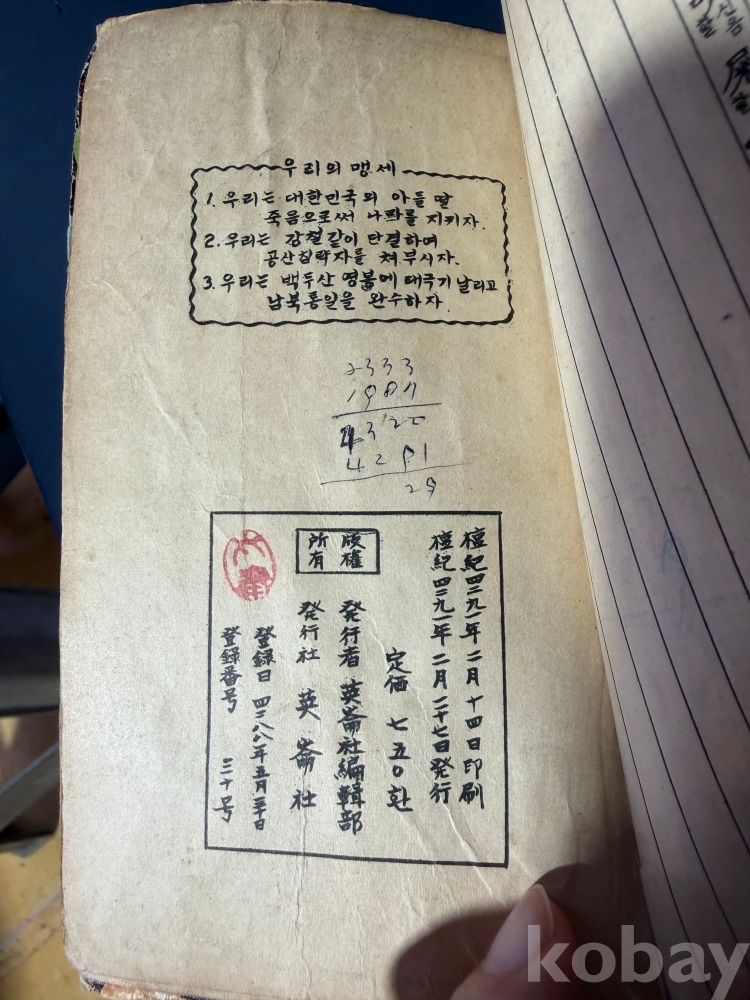 우리의 맹세
1. 우리는 대한민국의 아들 딸
죽음으로써 나라를 지키자.
2. 우리는 강철같이 단결하여
공산침략자를 쳐부시자.
3. 우리는 백두산 영봉에 태극기 날리고
남북통일을 완수하자
2333
1987
4320
4291
29
檀紀四二九一年 二月 十四日 印刷
檀紀四二九一年 二月 二十七日 発行
定価 七五〇환
版權
所有
発行者 英崙社編輯部
発行社 英崙社
登録日 四二八八年五月二十日
登録番号 三十号
kobay